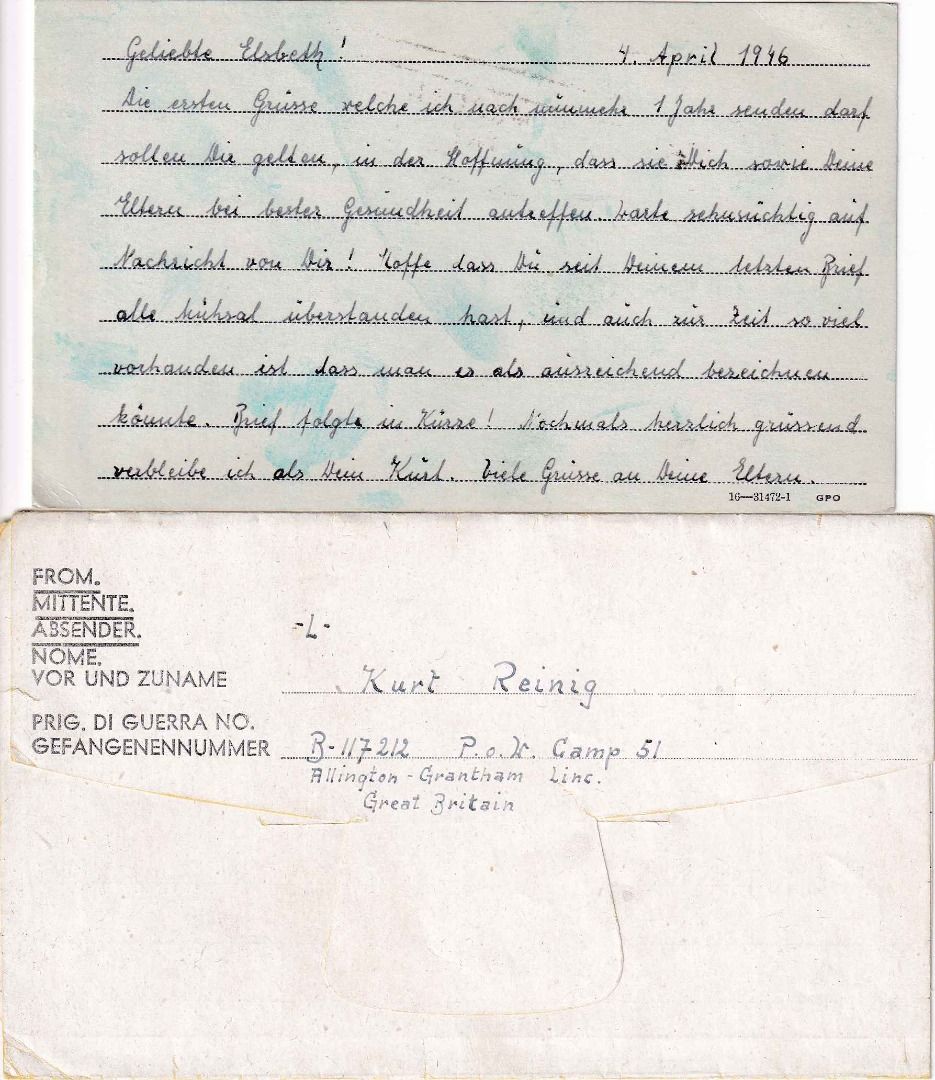 Geliebte Elsbeth! 4. April 1946
Die ersten Grüsse welche ich nach nunmehr 1 Jahr senden darf
sollen Dir gelten, in der Hoffnung, dass sie Dich sowie Deine
Eltern bei bester Gesundheit antreffen. Warte sehnsüchtig auf
Nachricht von Dir! Hoffe dass Du seit Deinem letzten Brief
alle Mühsal überstanden hast, und auch zur Zeit so viel
vorhanden ist dass man es als ausreichend bezeichnen
könnte. Brief folgte in Kürze! Nochmals herzlich grüssend
verbleibe ich als Dein Kurt. Viele Grüsse an Deine Eltern.
16—31472-1 GPO
FROM.
MITTENTE.
ABSENDER.
-L-
NOME.
VOR UND ZUNAME Kurt Reinig
PRIG. DI GUERRA NO.
GEFANGENENNUMMER B-117212 P.o.W. Camp 51
Allington-Grantham Linc.
Great Britain